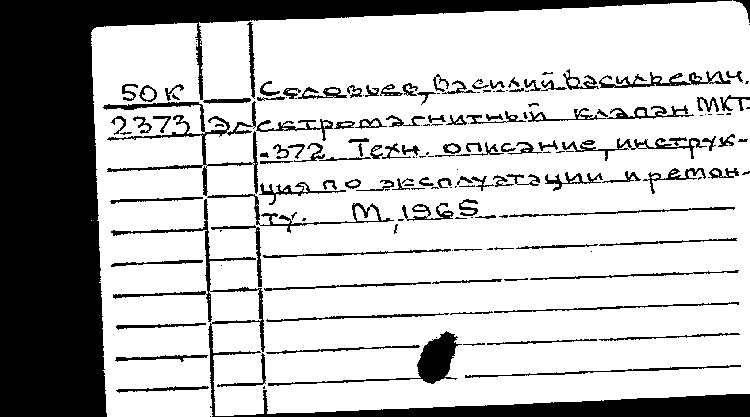 50К Соловьев, Василий Васильевич.
2373 Электромагнитный клапан МКТ-
-372. Техн. описание, инструк-
ция по эксплуатации и ремон-
ту. М., 1965